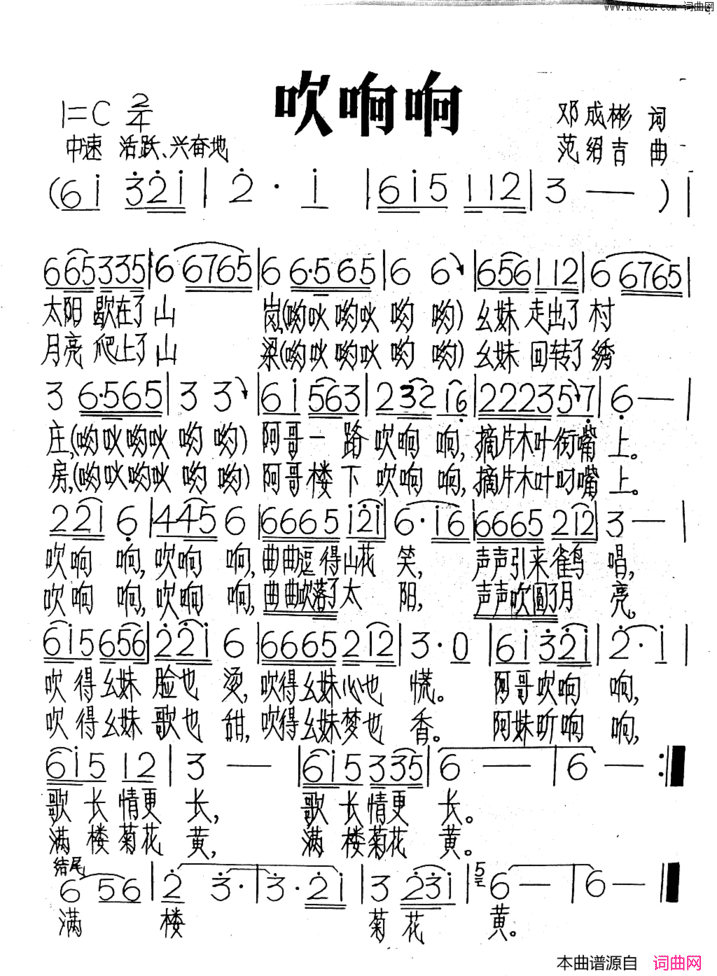 www.ktvc8.com 词曲网
吹响响
1=C 2/4
邓成彬 词
中速 活跃、兴奋地
范绍吉 曲
(6i 32i | 2· i | 6i5 112 | 3 — ) |
665335 | 6 6765 | 6 6·565 | 6 6 | 656112 | 6 6765 |
太阳 歇在了山 岚,(哟吙 哟吙 哟 哟) 幺妹 走出了 村
月亮 爬上了山 梁,(哟吙 哟吙 哟 哟) 幺妹 回转了 绣
3 6·565 | 3 3 | 6i 563 | 232 i6 | 222357 | 6 — |
庄,(哟吙哟吙 哟 哟) 阿哥一 路 吹响 响, 摘片木叶衔嘴 上。
房,(哟吙哟吙 哟 哟) 阿哥楼 下 吹响 响, 摘片木叶叼嘴 上。
22i 6 | 445 6 | 6665 i2i | 6·i6 | 6665 212 | 3 — |
吹响 响, 吹响 响, 曲曲逗得山花 笑, 声声引来雀鸟 唱,
吹响 响, 吹响 响, 曲曲吹落了太 阳, 声声吹圆了月 亮,
6i5656 | 22i 6 | 6665212 | 3·0 | 6i32i | 2·i |
吹 得幺妹 脸也 烫, 吹得幺妹心也 慌。 阿哥吹响 响,
吹 得幺妹 歌也 甜, 吹得幺妹梦也 香。 阿妹听响 响,
6i5 12 | 3 — | 6i5335 | 6 — | 6 — :||
歌 长情更 长, 歌 长情更 长。
满 楼菊花 黄, 满 楼菊花 黄。
结尾
6 56 | 2 3· | 3·2i | 3 23i | 5 6 — | 6 — ||
满 楼 菊 花 黄。
本曲谱源自 词曲网